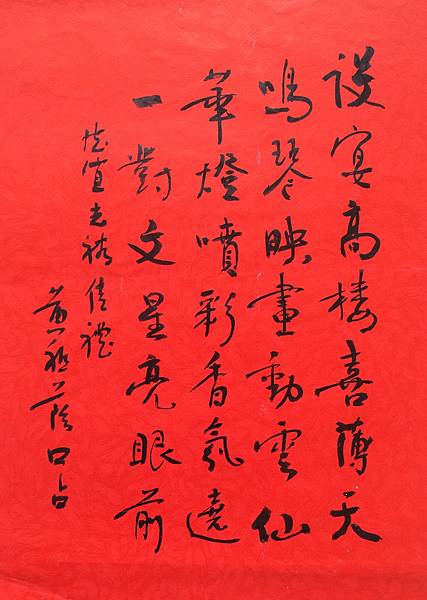 設宴高樓喜薄天
鳴琴映畫動雲仙
華燈噴彩香氣遶
一對文星亮眼前
佳禮
黃祖蔭口占